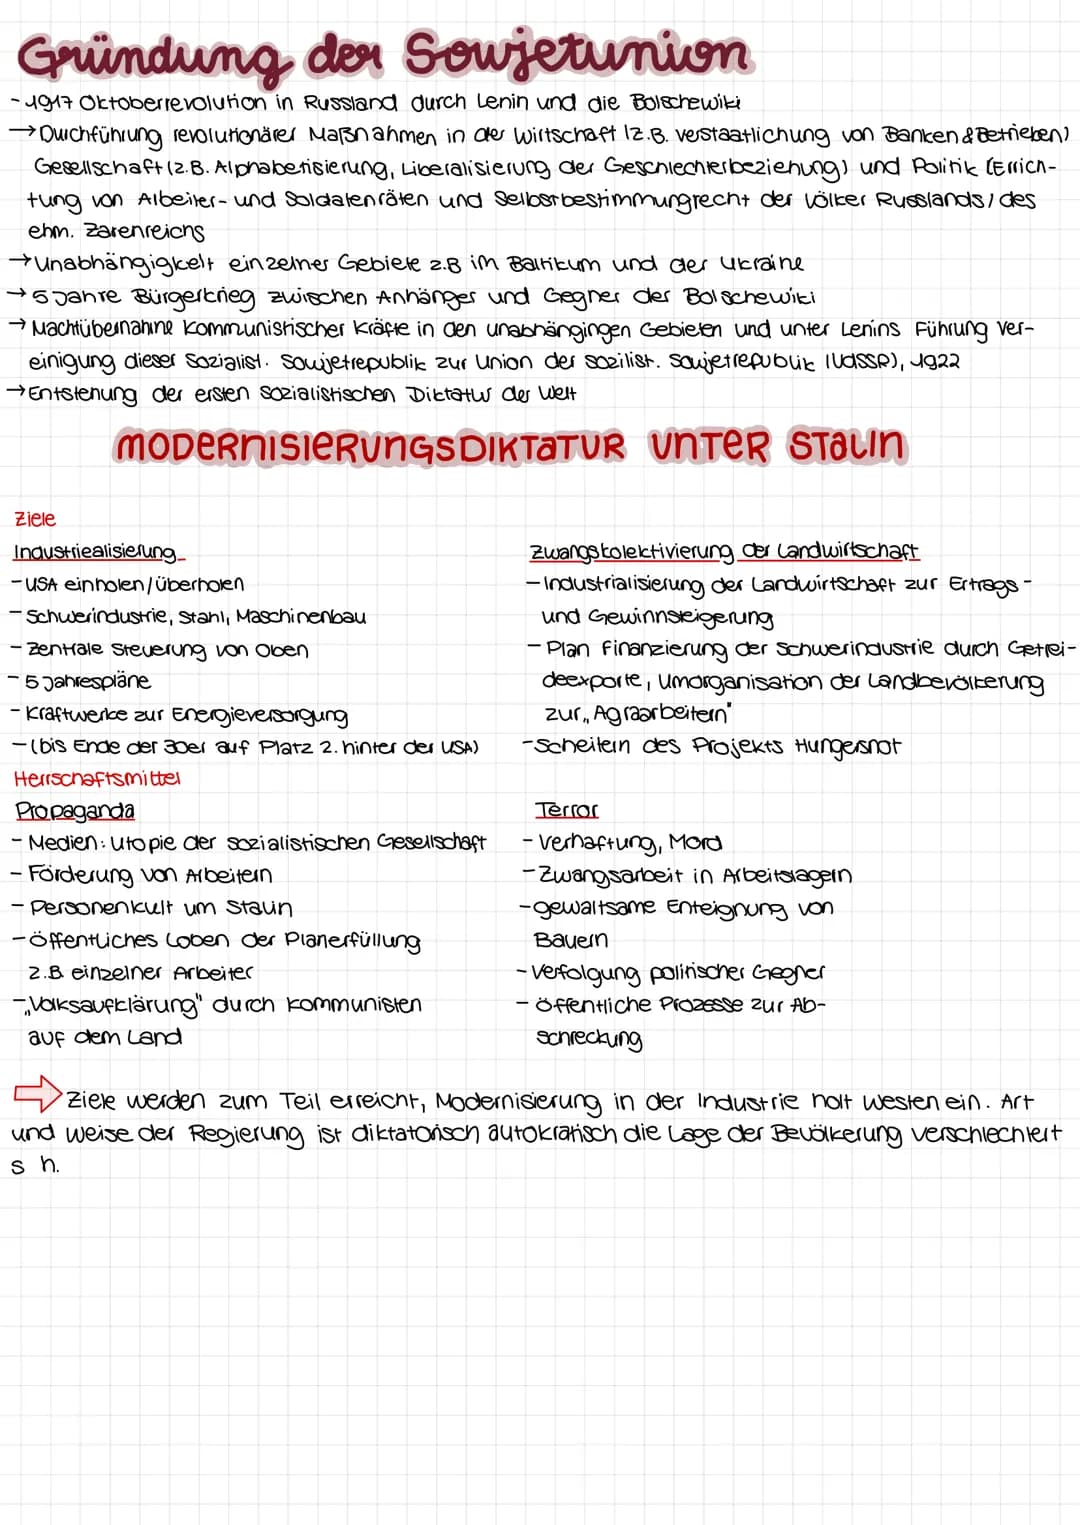 Gründung der Sowjetunion
- 1917 Oktoberrevolution in Russland durch Lenin und die Bolschewiki
→ Durchführung revolutionärer Maßnahmen in der Wirtschaft (z.B. verstaatlichung von Banken & Betrieben)
Gesellschaft (z.B. Alphabetisierung, Liberalisierung der Geschlechterbeziehung) und Politik (Errich-
tung von Arbeiter- und Soldatenräten und Selbstbestimmungrecht der Völker Russlands / des
ehm. Zarenreichs
→ Unabhängigkeit einzelner Gebiete z.B im Baltikum und der Ukraine
→ 5 Jahre Bürgerkrieg zwischen Anhänger und Gegner der Bolschewiki
→ Machtübernahme Kommunistischer Kräfte in den unabhängingen Gebieten und unter Lenins Führung Ver-
einigung dieser Sozialist. Sowjetrepublik zur Union der sozilist. Sowjetrepublik (UdSSR), 1922
→ Entstehung der ersten Sozialistischen Diktatur der Welt
MODERNISIERUNGSDIKTATUR UNTER STALIN
Ziele
Industriealisierung
- USA einholen/überholen
- Schwerindustrie, Stahl, Maschinenbau
- Zentrale Steuerung von Oben
- 5 Jahrespläne
- Kraftwerke zur Energieversorgung
- (bis Ende der 30er auf Platz 2. hinter der USA)
Zwangskolektivierung der Landwirtschaft
- Industrialisierung der Landwirtschaft zur Ertrags-
und Gewinnsteigerung
- Plan Finanzierung der Schwerindustrie durch Getrei-
deexporte, Umorganisation der Landbevölkerung
zur „Agraarbeitern"
- Scheitern des Projekts Hungersnot
Herrschaftsmittel
Propaganda
- Medien: Utopie der sozialistischen Gesellschaft
- Förderung von Arbeitern
- Personenkult um Stalin
- Öffentliches Loben der Planerfüllung
z.B. einzelner Arbeiter
- „Volksaufklärung" durch Kommunisten
auf dem Land
Terror
- Verhaftung, Mord
- Zwangsarbeit in Arbeitslagern
- gewaltsame Enteignung von
Bauern
- Verfolgung politischer Gegner
- Öffentliche Prozesse zur Ab-
schreckung
Ziele werden zum Teil erreicht, Modernisierung in der Industrie holt Westen ein. Art
und Weise der Regierung ist diktatorisch autokratisch die Lage der Bevölkerung verschlechtert
s h.